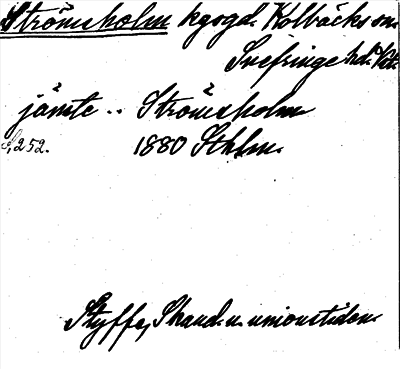 Strömsholm kgsgd. Kolbäcks sn.
Snefringe hd. Vstm.
jämte .. Strömsholm
S. 252. 1880 Sthlm.
Styffe, Skand. u. unionstiden.